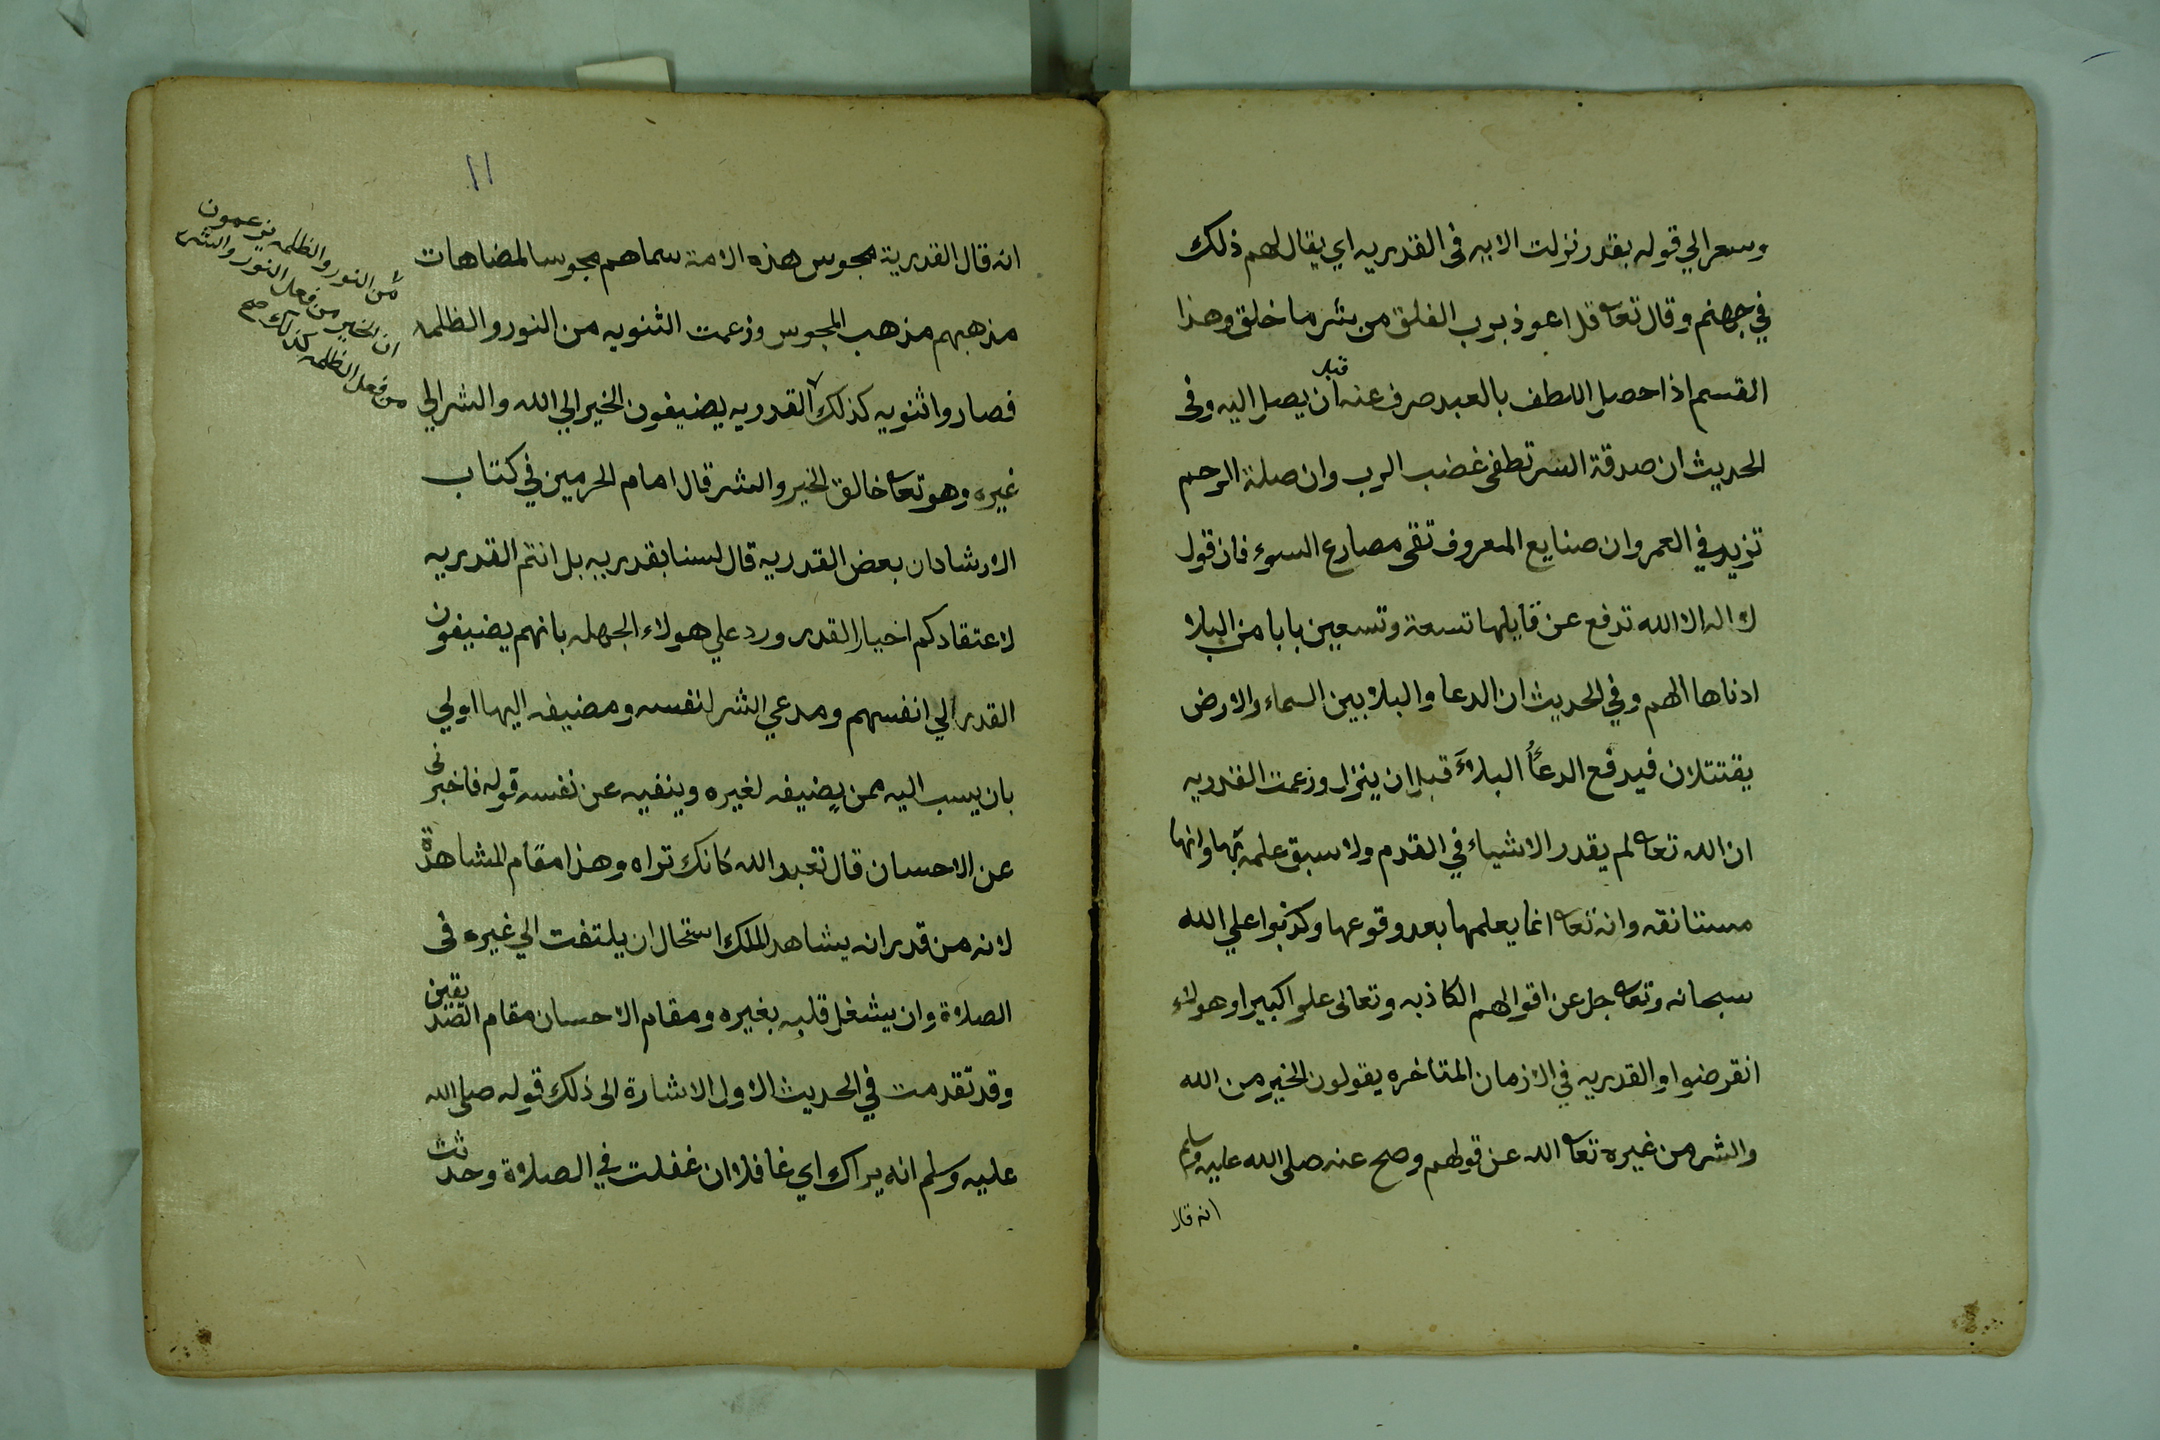 وسعر الي قوله بقدر نزلت الايه فى القدريه اي يقال لهم ذلك
في جهنم وقال تعا قل اعوذ برب الفلق من شر ما خلق وهذا
القسم اذا احصل اللطف بالعبد صرف عنه قبل ان يصل اليه وفى
الحديث ان صدقة السر تطفى غضب الرب وان صلة الرحم
تزيد في العمر وان صنايع المعروف تقى مصارع السوء فان قول
لا اله الا الله تدفع عن قايلها تسعة وتسعين بابا من البلا
ادناها الهم وفي الحديث ان الدعا والبلا بين السماء والارض
يقتتلان فيدفع الدعاُ البلاَء قبل ان ينزل وزعمت القدريه
ان الله تعا لم يقدر الاشياء في القدم ولا سبق علمه بها وانها
مستانفه وانه تعا انما يعلمها بعد وقوعها وكذبوا علي الله
سبحانه وتعا جل عن اقوالهم الكاذبه وتعالى علوا كبيرا وهولاء
انقرضوا والقدريه في الازمان المتاخره يقولون الخير من الله
والشر من غيره تعا الله عن قولهم وصح عنه صلى الله عليه وسلم
انه قال
١١
انه قال القدرية مجوس هذه الامة سماهم مجوسا لمضاهات
مذهبهم مذهب المجوس وزعمت الثنويه من النور والظلمه
فصاروا ثنويه كذلك القدريه يضيفون الخير الى الله والشر الي
غيره وهو تعا خالق الخير والشر قال امام الحرمين في كتاب
الارشاد ان بعض القدريه قال لسنا بقدريه بل انتم القدريه
لاعتقادكم اخبار القدر ورد علي هولاء الجهله بانهم يضيفون
القدر الي انفسهم ومدعي الشر لنفسه ومضيفه اليها اولي
بان يسب اليه ممن يضيفه لغيره وينفيه عن نفسه قوله فاخبرنى
عن الاحسان قال تعبد الله كانك تراه وهذا مقام المشاهدة
لانه من قدر انه يشاهد الملك استحال ان يلتفت الي غيره فى
الصلاة وان يشغل قلبه بغيره ومقام الاحسان مقام الصديقين
وقد تقدمت في الحديث الاول الاشارة الى ذلك قوله صلى الله
عليه وسلم انه يراك اي غافلا ان غفلت في الصلاة وحدثت
من النور والظلمه يزعمون
ان الخير من فعل النور والشر
من فعل الظلمه كذلك صح